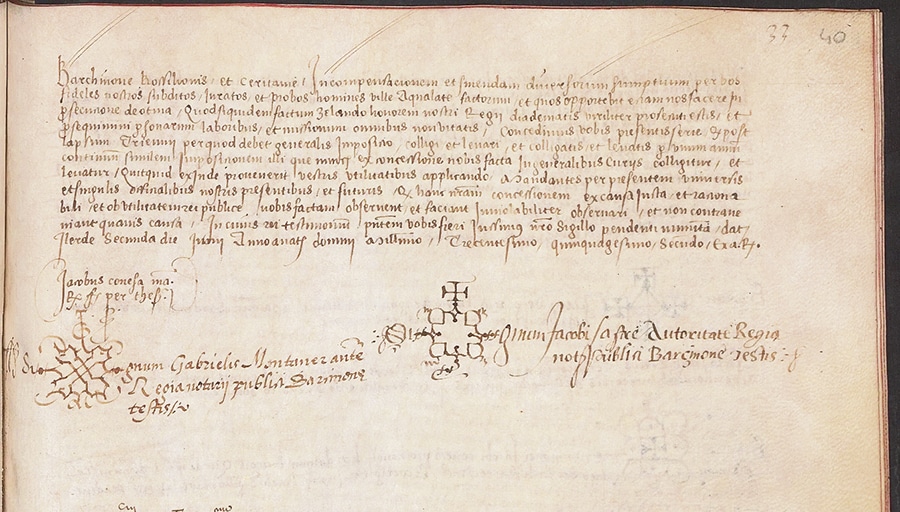 33 40
Barchinone Rossilionis, et Ceritanie, In compensacionem et smendam diversorum sumptuum per vos
fideles nostros subditos, Juratos, et probos homines ville Aqualate factorum, et quos opportebit etiam nos facere in
prosecucione de otina, Quod siquidem factum zelando honorem nostri Regii diadematis viriliter prosecuti estis, et
prosequimini personarum laboribus, et missionum omnibus non vitatis, Concedimus vobis presentis serie, q post
lapsum Triennii per quod debet generalis Imposicio, colligi et levari, et colligatis et levatis per unum annum
continuum similem Imposicionem illi que nunc ex concessione nobis facta In generalibus Curiis colligitur, et
levatur, Quitquid exinde provenerit vestris utilitatibus applicando Mandantes per presentem universis
et singulis officialibus nostris presentibus, et futuris, Q hanc nram concessionem ex causa Justa, et raciona
bili, et ob utilitatem rei publice vobis factam observent, et faciant Inviolabiliter observari, et non contrave
niant quavis causa, In cuius rei testimonium pntem vobis fieri Iussimus nro sigillo pendenti munita, dat
Ilerde Secunda die Junii Anno a nats domini Millimo, Trecentesimo, quinquagesimo, Secundo, Exa. R.
Jacobus conesa ma.
Rx fs per thes.
Sig num Jacobi Sastre Autoritate Regia
notz publici Barcinone Testis
Sig num Gabrielis Montaner aute
Regia notarii publici Barcinone
testis